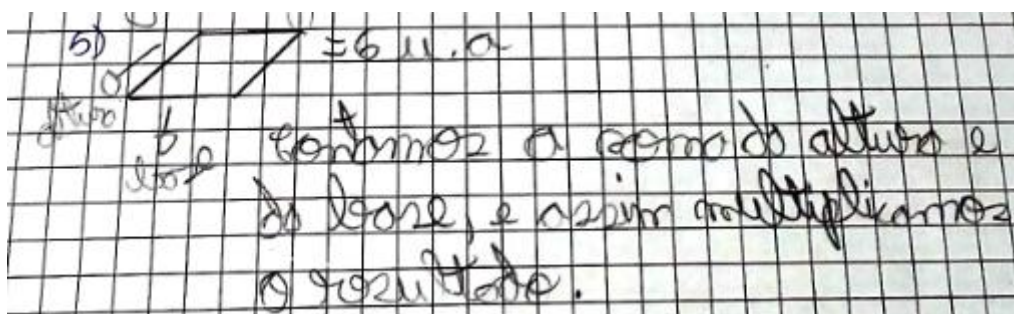 5) = 6 u.a
a
altura b
base contamos a soma da altura e
da base, e assim multiplicamos
o rezultado.